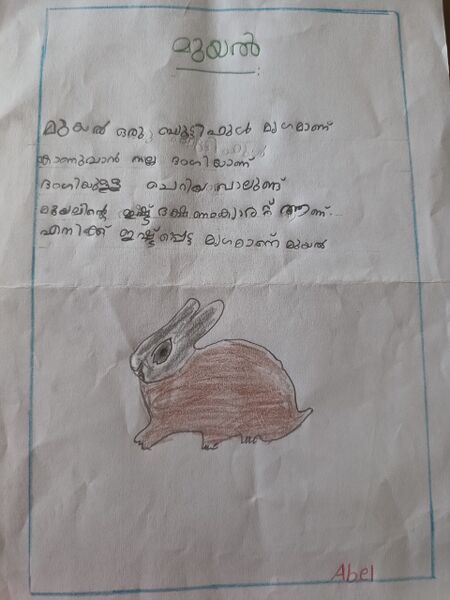 മുയൽ
മുയൽ ഒരു ബ്യൂട്ടിഫുൾ മൃഗമാണ്
കാണുവാൻ നല്ല ഭംഗിയാണ്
ഭംഗിയുള്ള ചെറിയ വാലുണ്ട്
മുയലിന്റെ ഇഷ്ട ഭക്ഷണം ക്യാരറ്റ് ആണ്.
എനിക്ക് ഇഷ്ട്ടപ്പെട്ട മൃഗമാണ് മുയൽ
Abel